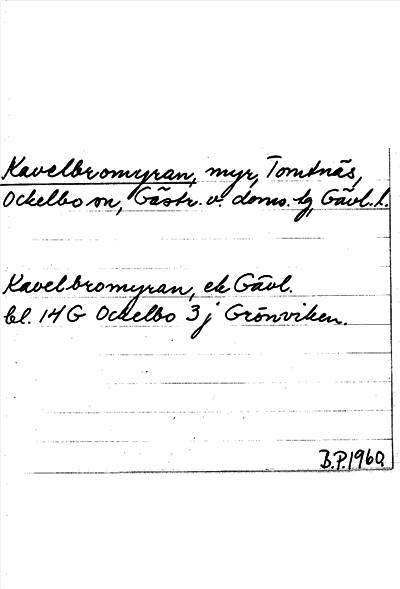 Kavelbromyran, myr, Tomtnäs,
Ockelbo sn, Gästr. v. doms. tg, Gävl. l.
Kavelbromyran, ek Gävl.
bl. 14G Ockelbo 3j Grönviken.
B.P. 1960.